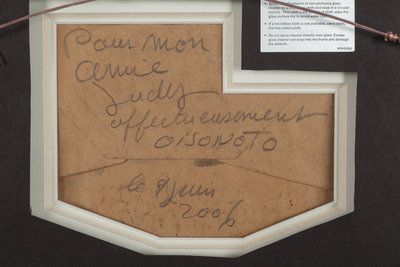 Pour mon
amie
Judes
affectueusement
OISONOTO
le 9 juin
2006
cleaner on a
cloth and wipe in a circular
motion. Then with a dry
cloth, wipe the
glass surface dry to avoid
If a microfiber cloth is not available, use a clean,
lint-free cotton cloth.
Do not spray cleaner directly onto glass. Excess
glass cleaner can seep into the frame and damage
the artwork.